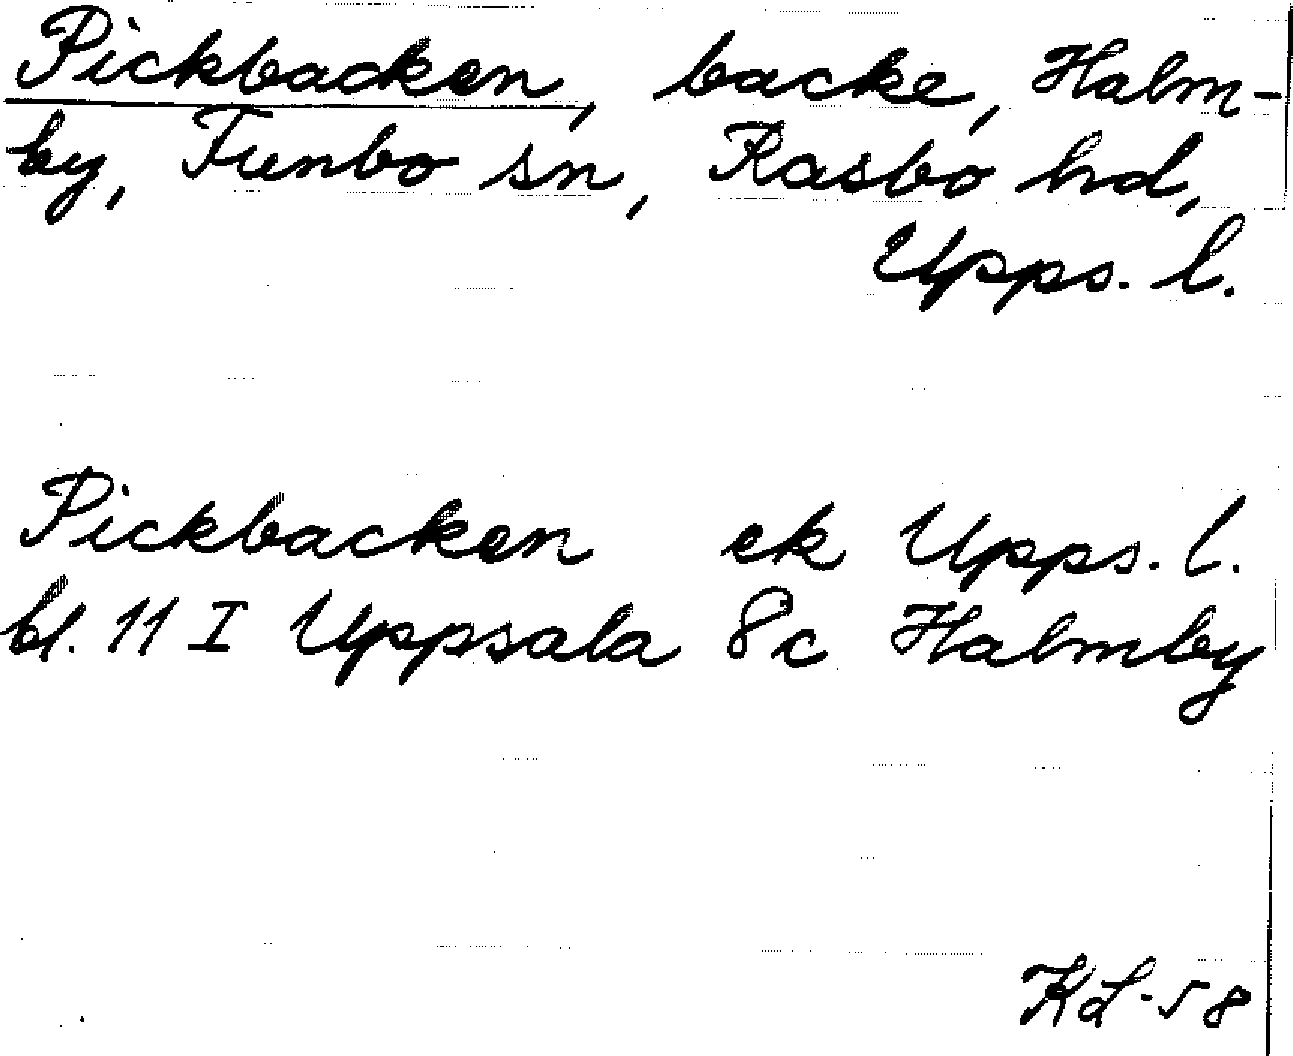 Pickbacken, backe, Halm-
by, Funbo sn, Rasbo hd,
Upps. l.
Pickbacken ek Upps. l.
bl. 11 I Uppsala 8c Halmby
KL-58